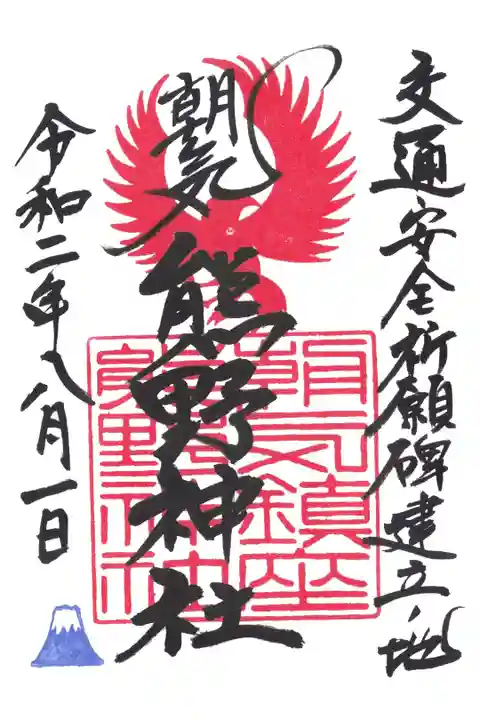 交通安全祈願碑建立ノ地
朝気
熊野神社
令和二年八月一日
朝气鎮座
熊野神社